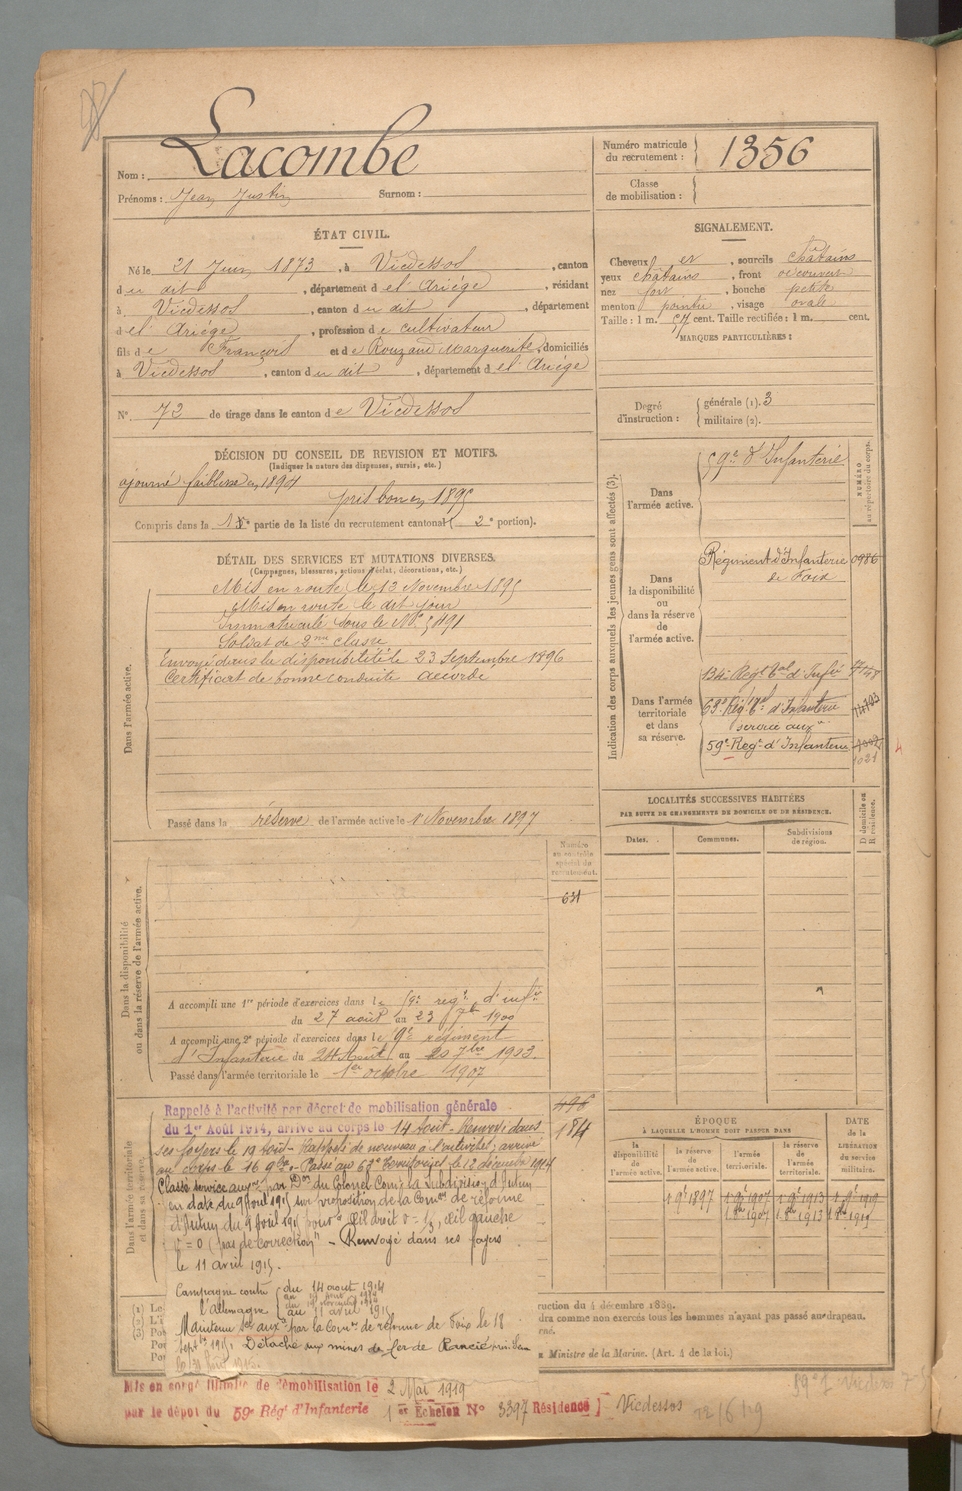 Nom : Lacombe
Prénoms : Jean Justin Surnom :
Numéro matricule du recrutement : 1356
Classe de mobilisation :
ÉTAT CIVIL.
Né le 21 Juin 1873, à Vicdessos, canton
du dit, département de l'Ariège, résidant
à Vicdessos, canton du dit, département
de l'Ariège, profession de cultivateur
fils de François et de Rouzaud Marguerite, domiciliés
à Vicdessos, canton du dit, département de l'Ariège
N° 72 de tirage dans le canton de Vicdessos
SIGNALEMENT.
Cheveux et, sourcils châtains
yeux châtains, front découvert
nez fort, bouche petite
menton pointu, visage ovale
Taille : 1 m. cent. Taille rectifiée : 1 m. cent.
MARQUES PARTICULIÈRES :
Degré d'instruction : générale (1). 3
militaire (2).
DÉCISION DU CONSEIL DE REVISION ET MOTIFS.
(Indiquer la nature des dispenses, sursis, etc.)
ajourné faiblesse en 1894
pris bon en 1895
Compris dans la 1re partie de la liste du recrutement cantonal (2e portion).
DÉTAIL DES SERVICES ET MUTATIONS DIVERSES.
(Campagnes, blessures, actions d'éclat, décorations, etc.)
Dans l'armée active.
Mis en route le 13 Novembre 1895
Mis en route le dit jour
Immatriculé sous le N° 5491
Soldat de 2me classe
Envoyé dans la disponibilité le 23 Septembre 1896
Certificat de bonne conduite accordé
Passé dans la réserve de l'armée active le 1er Novembre 1897
Indication des corps auxquels les jeunes gens sont affectés (3).
NUMÉRO au répertoire du corps.
Dans l'armée active.
59e d'Infanterie
Dans la disponibilité ou dans la réserve de l'armée active.
Régiment d'Infanterie de Foix 0986
Dans l'armée territoriale et dans sa réserve.
134e Régt Tal d'Infie
63e Rég. Tal d'Infanterie
service auxre
59e Regt d'Infanterie
1021
LOCALITÉS SUCCESSIVES HABITÉES
PAR SUITE DE CHANGEMENTS DE DOMICILE OU DE RÉSIDENCE.
Dates. Communes. Subdivisions de région. D domicile ou R résidence.
Numéro au contrôle spécial du recrutement.
631
Dans la disponibilité ou dans la réserve de l'armée active.
A accompli une 1re période d'exercices dans le 59e regt d'infie
du 27 août au 23 7bre 1900
A accompli une 2e période d'exercices dans le 59e régiment
d'Infanterie du 24 Août au 20 7bre 1903.
Passé dans l'armée territoriale le 1er octobre 1907
Dans l'armée territoriale et dans sa réserve.
496
184
Rappelé à l'activité par décret de mobilisation générale
du 1er Août 1914, arrivé au corps le 14 Août - Renvoyé dans
ses foyers le 19 Août - Rappelé de nouveau à l'activité, arrivé
au corps le 16 9bre. Passé au 63e Territorial le 12 décembre 1914
Classé service auxre par Don du Colonel Comt la Subdivision d'Autun
en date du 9 Avril 1915 sur proposition de la Comon de réforme
d'Autun du 9 Avril 1915 pour œil droit œil gauche
= 0 (pas de correction) - Renvoyé dans ses foyers
le 11 avril 1915.
Campagne contre l'Allemagne
du 14 août 1914
au 19 août 1914
du 16 novembre 1914
au 11 avril 1915
Maintenu sce auxre par la Comon de réforme de Foix le 18
Septbre 1915. Détaché aux mines de fer de Rancié
ÉPOQUE
À LAQUELLE L'HOMME DOIT PASSER DANS
la disponibilité de l'armée active. la réserve de l'armée active. l'armée territoriale. la réserve de l'armée territoriale.
DATE de la LIBÉRATION du service militaire.
1 9bre 1897 1 9bre 1907 1 9bre 1913 1 9bre 1919
1 8bre 1907 1 8bre 1913 1 8bre 1919
ruction du 4 décembre 1889.
dra comme non exercés tous les hommes n'ayant pas passé au drapeau.
Ministre de la Marine. (Art. 4 de la loi.)
Mis en congé illimité de démobilisation le 2 Mai 1919
par le dépôt du 59e Régt d'Infanterie 1er Echelon N° 3397 Résidence Vicdessos